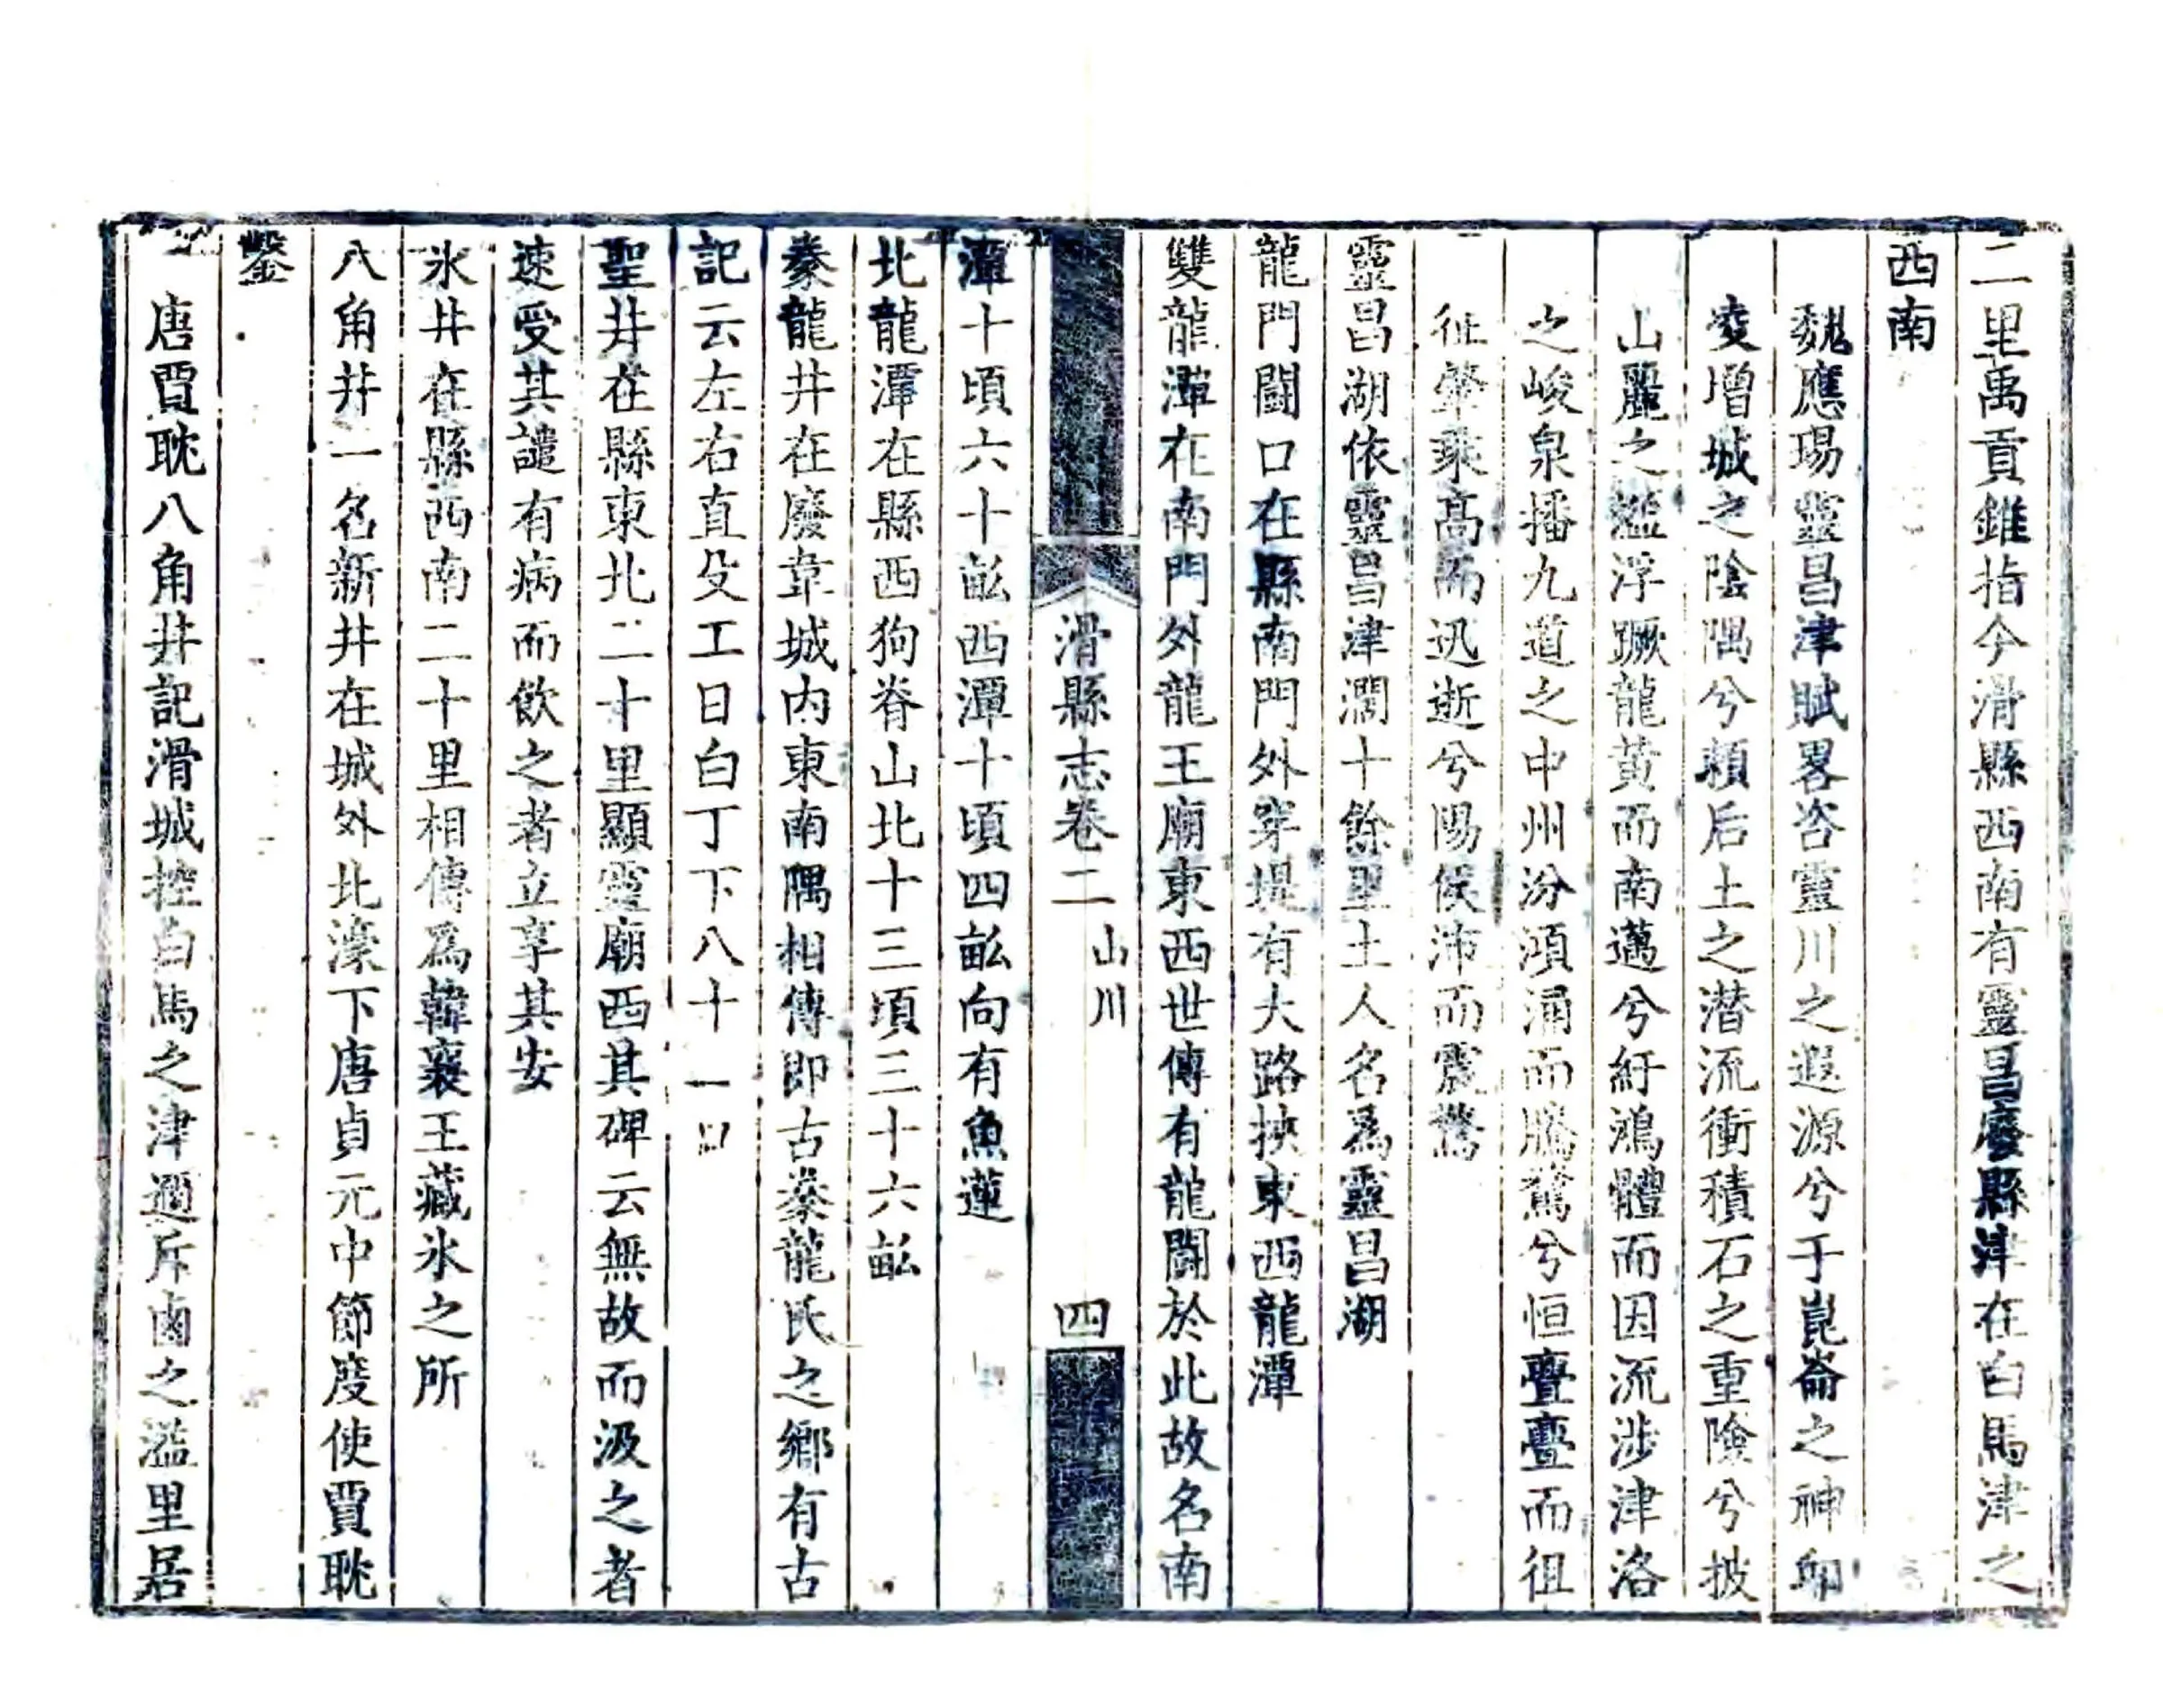 二里禹貢錐指今滑縣西南有靈昌廢縣津在白馬津之
西南
魏應瑒靈昌津賦畧咨靈川之遐源兮于崑崙之神邱
凌增城之陰隅兮賴后土之潜流衝積石之重險兮披
山麓之溢浮蹶龍黃而南邁兮紆鴻體而因流涉津洛
之峻泉播九道之中州汾澒涌而騰騖兮恒亹亹而徂
征肇乘高而迅逝兮陽侯沛而震驚
靈昌湖依靈昌津濶十餘里土人名爲靈昌湖
龍門闘口在縣南門外穿堤有大路挾東西龍潭
雙龍潭在南門外龍王廟東西世傳有龍闘於此故名南
潭十頃六十畝西潭十頃四畝向有魚蓮
滑縣志卷二 山川 四
北龍潭在縣西狗脊山北十三頃三十六畝
豢龍井在廢韋城内東南隅相傳即古豢龍氏之鄉有古
記云左右直殳工日白丁下八十一
聖井在縣東北二十里顯靈廟西其碑云無故而汲之者
速受其譴有病而飲之者立享其安
氷井在縣西南二十里相傳爲韓襄王藏氷之所
八角井一名新井在城外北濠下唐貞元中節度使賈耽
鑿
唐賈耽八角井記滑城控白馬之津迺斥鹵之溢里居